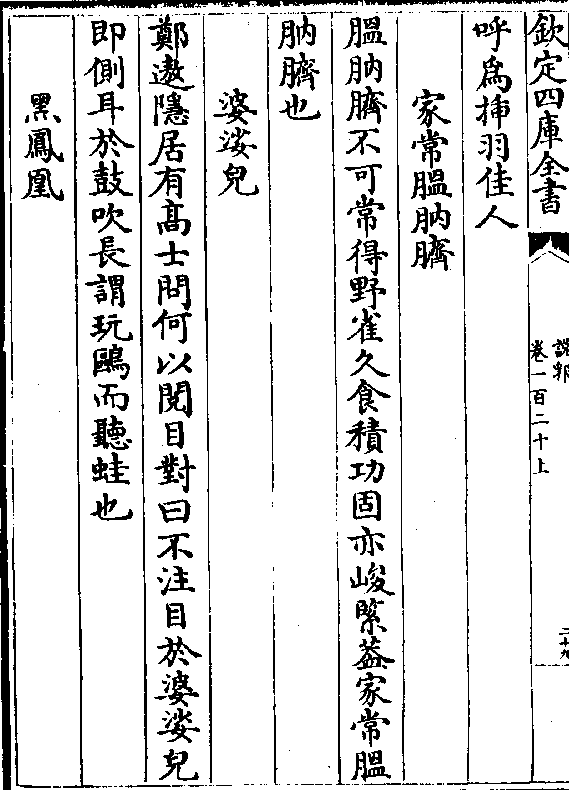 欽定四庫全書
說郛
卷一百二十上
二十九
呼為揷羽佳人
家常膃肭臍
膃肭臍不可常得野雀久食積功固亦峻緊葢家常膃
肭臍也
婆娑兒
鄭遨隱居有髙士問何以閱目對曰不注目於婆娑兒
即側耳於鼓吹長謂玩鷗而聽蛙也
黑鳳凰